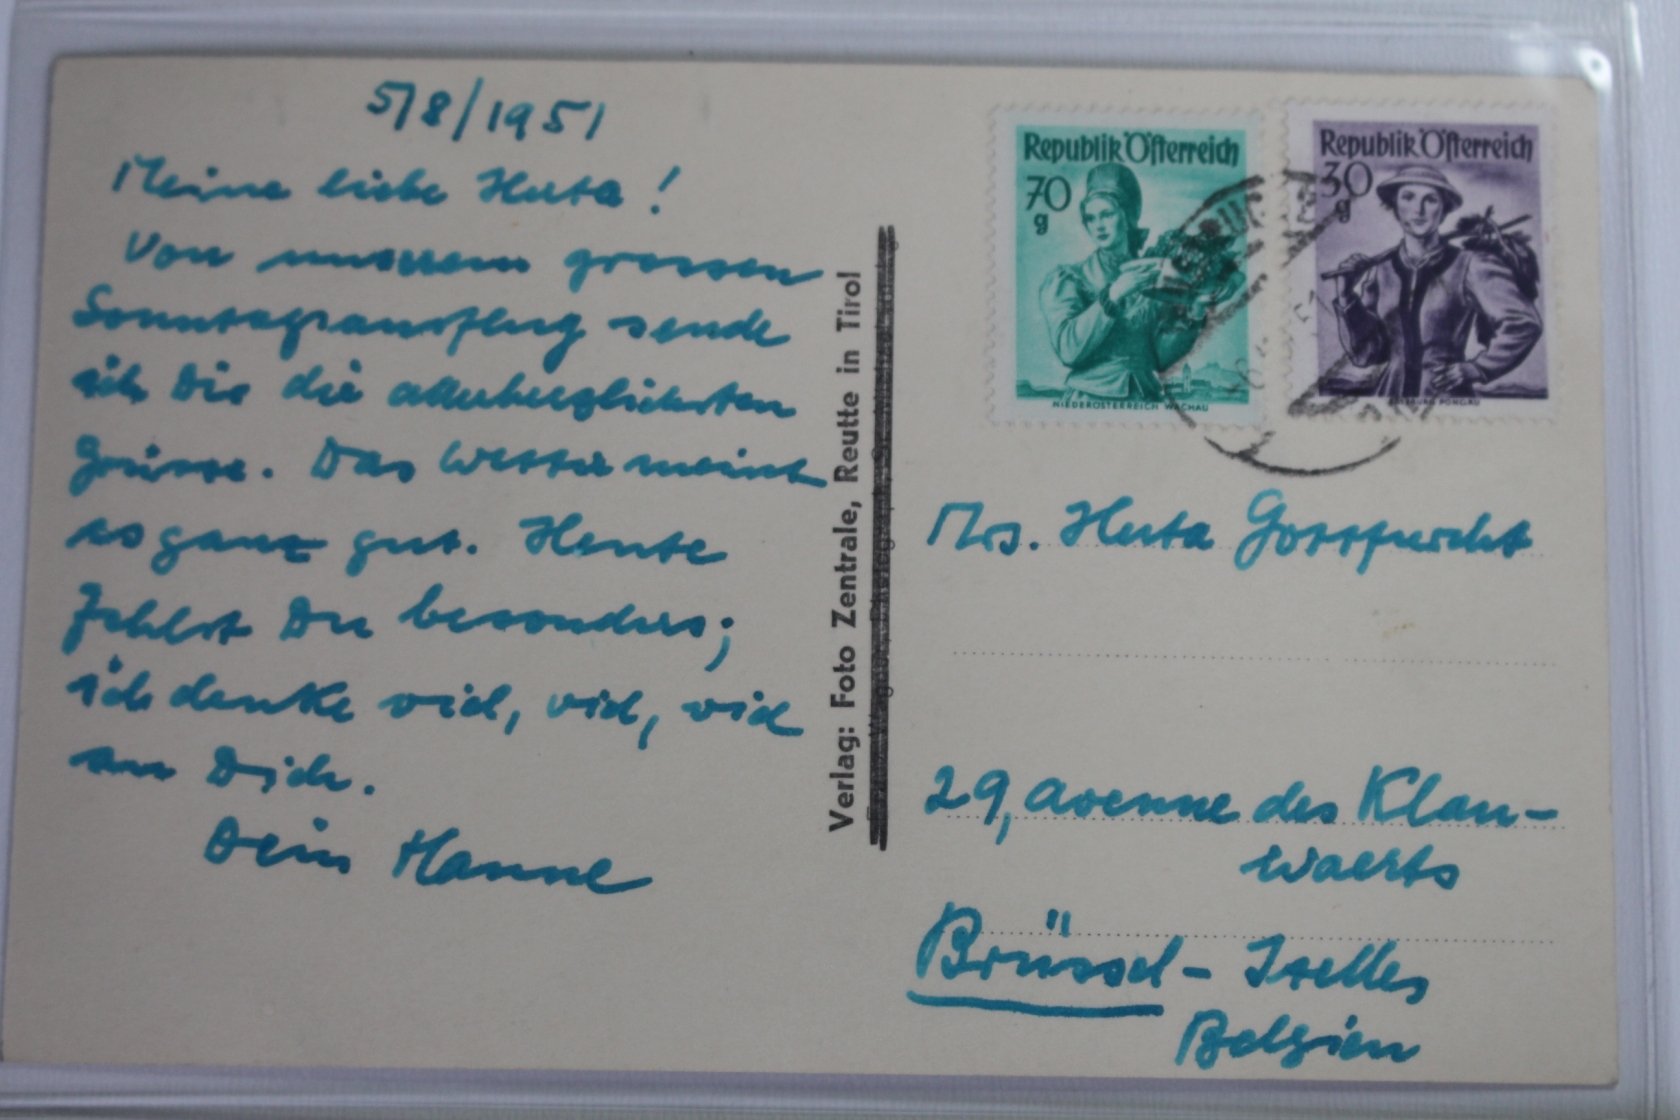 5/8/1951
Meine liebe Herta!
Von unserem grossen
Sonntagsausflug sende
ich Dir die allerherzlichsten
Grüsse. Das Wetter meint
es ganz gut. Heute
fehlst Du besonders;
ich denke viel, viel, viel
an Dich.
Dein Hanne
Verlag: Foto Zentrale, Reutte in Tirol
Republik Österreich
70
g
NIEDERÖSTERREICH WACHAU
Republik Österreich
30
g
PONGAU
Mrs. Herta Gottfurcht
29, avenue des Klau-
waerts
Brüssel - Ixelles
Belgien